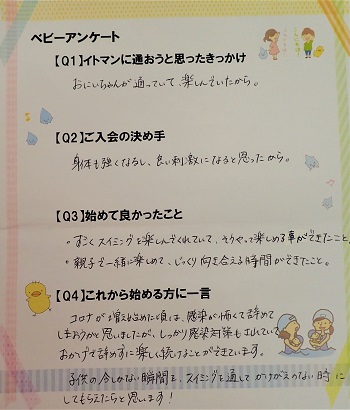 ベビーアンケート
【Q1】イトマンに通おうと思ったきっかけ
おにいちゃんが通っていて、楽しんでいたから。
【Q2】ご入会の決め手
身体も強くなるし、良い刺激になると思ったから。
【Q3】始めて良かったこと
・すごくスイミングを楽しんでくれていて、そうやって楽しめる事ができたこと。
・親子で一緒に楽しめて、じっくり向き合える時間ができたこと。
【Q4】これから始める方に一言
コロナが増え始めた頃は、感染が怖くて辞めて
しまおうかと思いましたが、しっかり感染対策もされていて
おかげで辞めずに楽しく続けることができています。
子供の今しかない瞬間を、スイミングを通してかけがえのない時に
してもらえたらと思います!